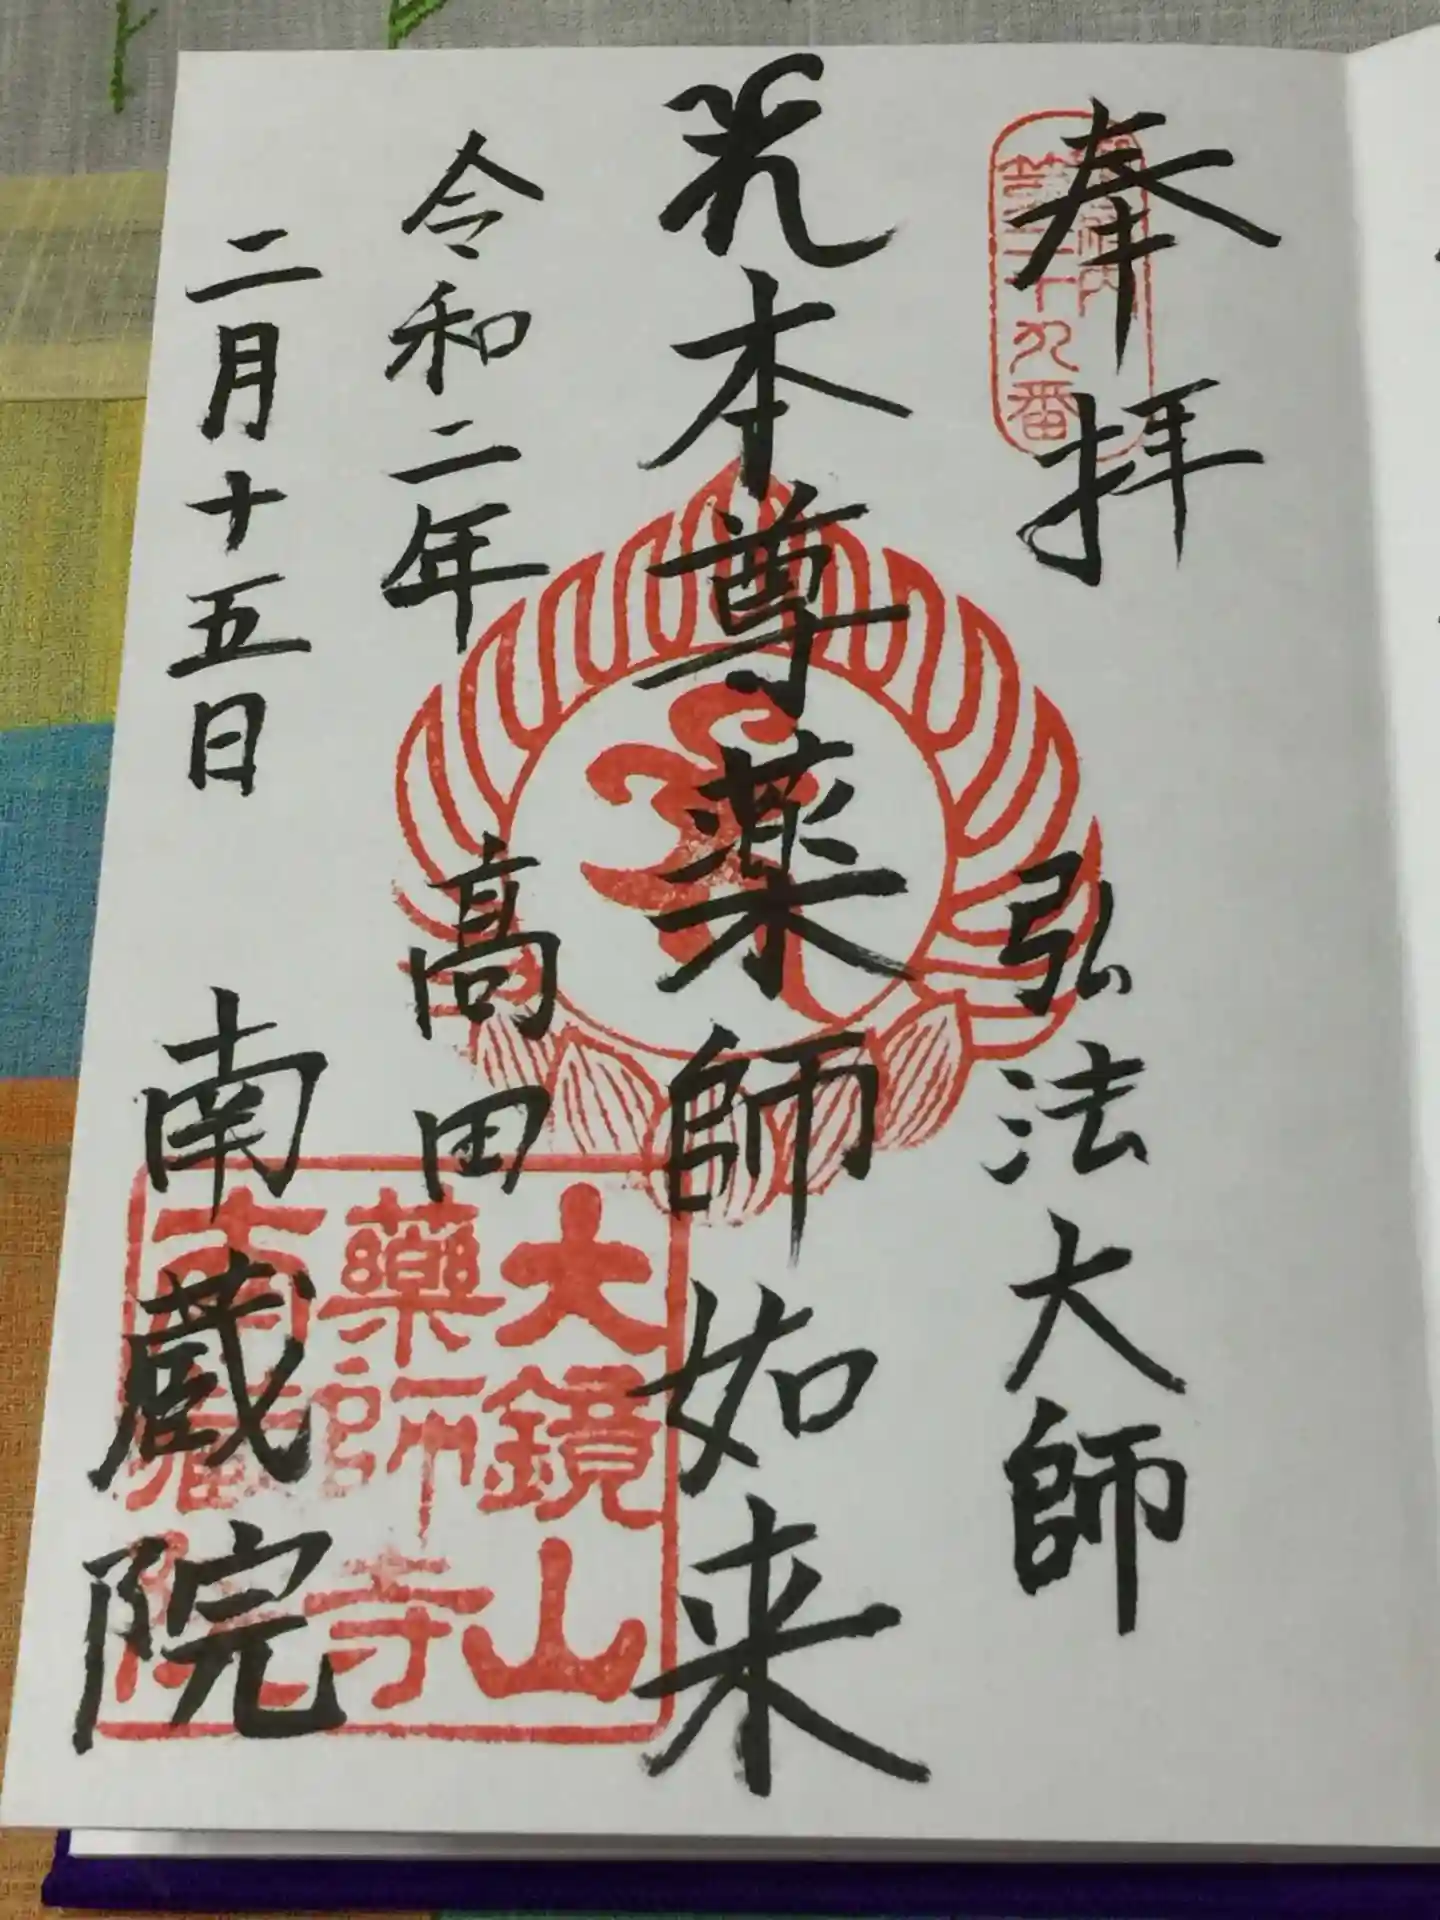 奉拝
弘法大師
本尊薬師如来
令和二年
高田
二月十五日
南蔵院
第二十九番
大鏡山
藥師寺
南藏院